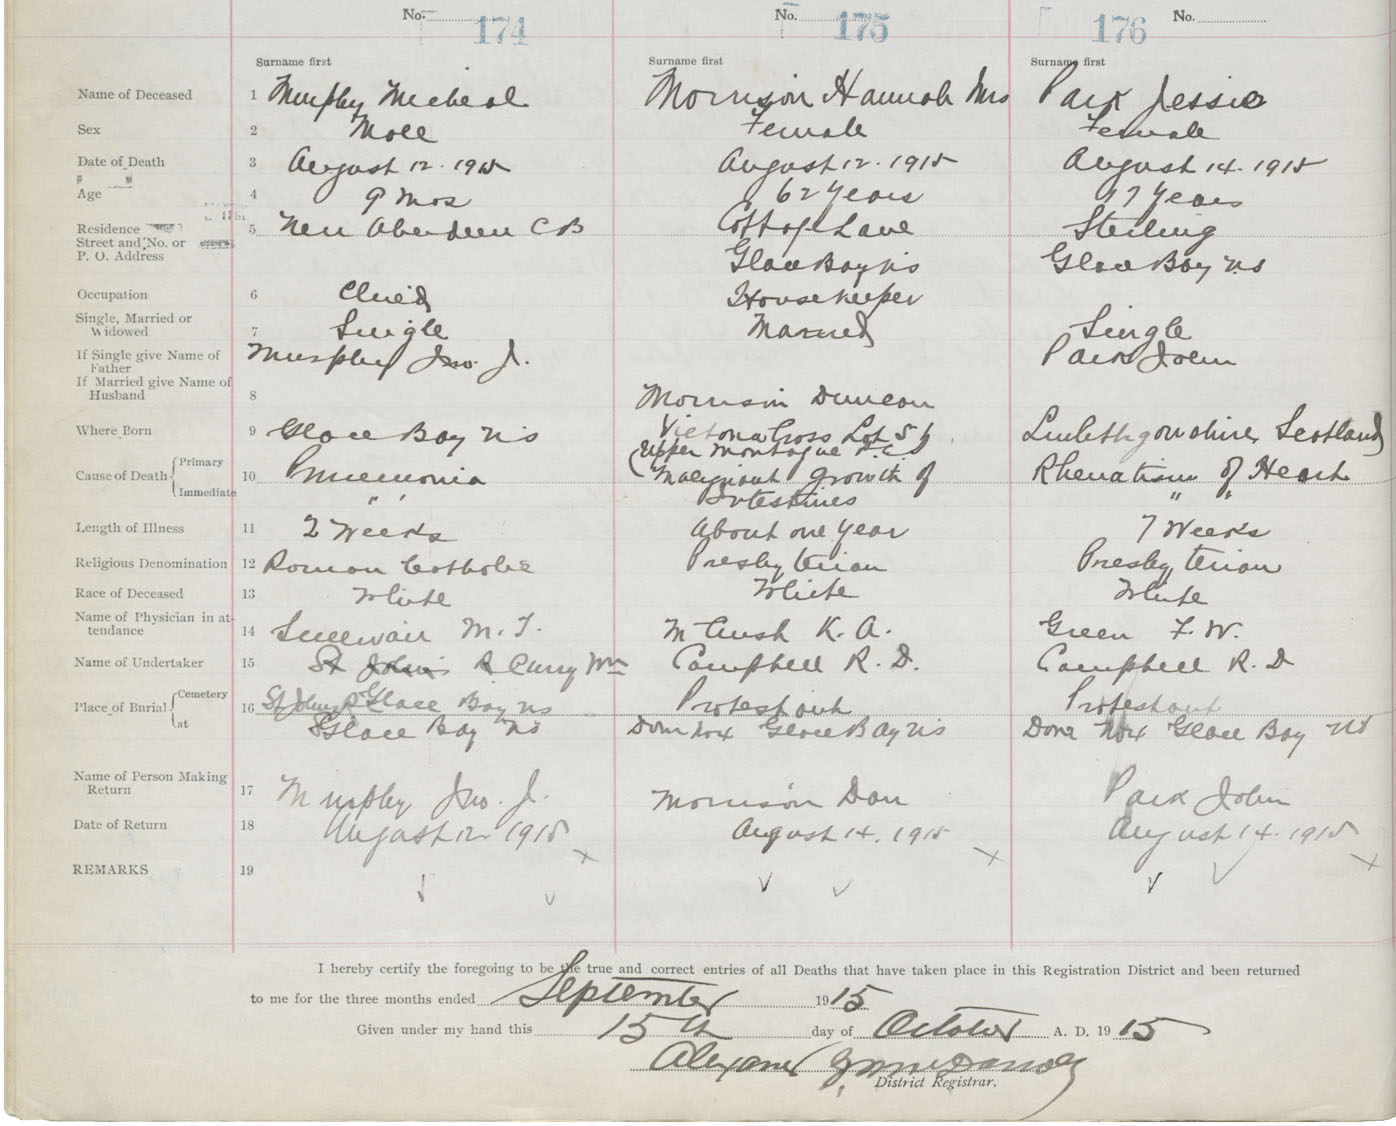 No. 174 No. 175 No. 176
Surname first Surname first Surname first
Name of Deceased 1 Murphy Micheal Morrison Hannah Mrs Park Jessie
Sex 2 Male Female Female
Date of Death 3 August 12. 1915 August 12. 1915 August 14. 1915
Age 4 9 Mos 62 Years 17 Years
Residence 5 New Aberdeen C B Cottage Lane Sterling
Street and No. or
P. O. Address Glace Bay NS Glace Bay N.S
Occupation 6 Child Housekeeper
Single, Married or
Widowed 7 Single Married Single
If Single give Name of
Father Murphy Jno. J. Park John
If Married give Name of
Husband 8 Morrison Duncan
Where Born 9 Glace Bay NS Victoria Cross Lot 51 Linlithgowshire, Scotland
(Upper Montague P.E.I)
Cause of Death { Primary 10 Pnuemonia Malignant growth of Rheuatism of Heart
Immediate " " Intestines " "
Length of Illness 11 2 Weeks About one year 7 Weeks
Religious Denomination 12 Roman Catholic Presbyterian Presbyterian
Race of Deceased 13 White White White
Name of Physician in at-
tendance 14 Sullivan M. T. K. A. Green F. W.
Name of Undertaker 15 St Johns R Curry Wm Campbell R. D. Campbell R. D
Place of Burial { Cemetery 16 St Johns Glace Bay NS Protestant Protestant
at Glace Bay NS Glace Bay NS Glace Bay NS
Name of Person Making
Return 17 Murphy Jno. J. Morrison Dan Park John
Date of Return 18 August 12 1915 August 14. 1915 August 14. 1915
REMARKS 19
I hereby certify the foregoing to be the true and correct entries of all Deaths that have taken place in this Registration District and been returned
to me for the three months ended September 1915
Given under my hand this 15th day of October A. D. 1915
District Registrar.